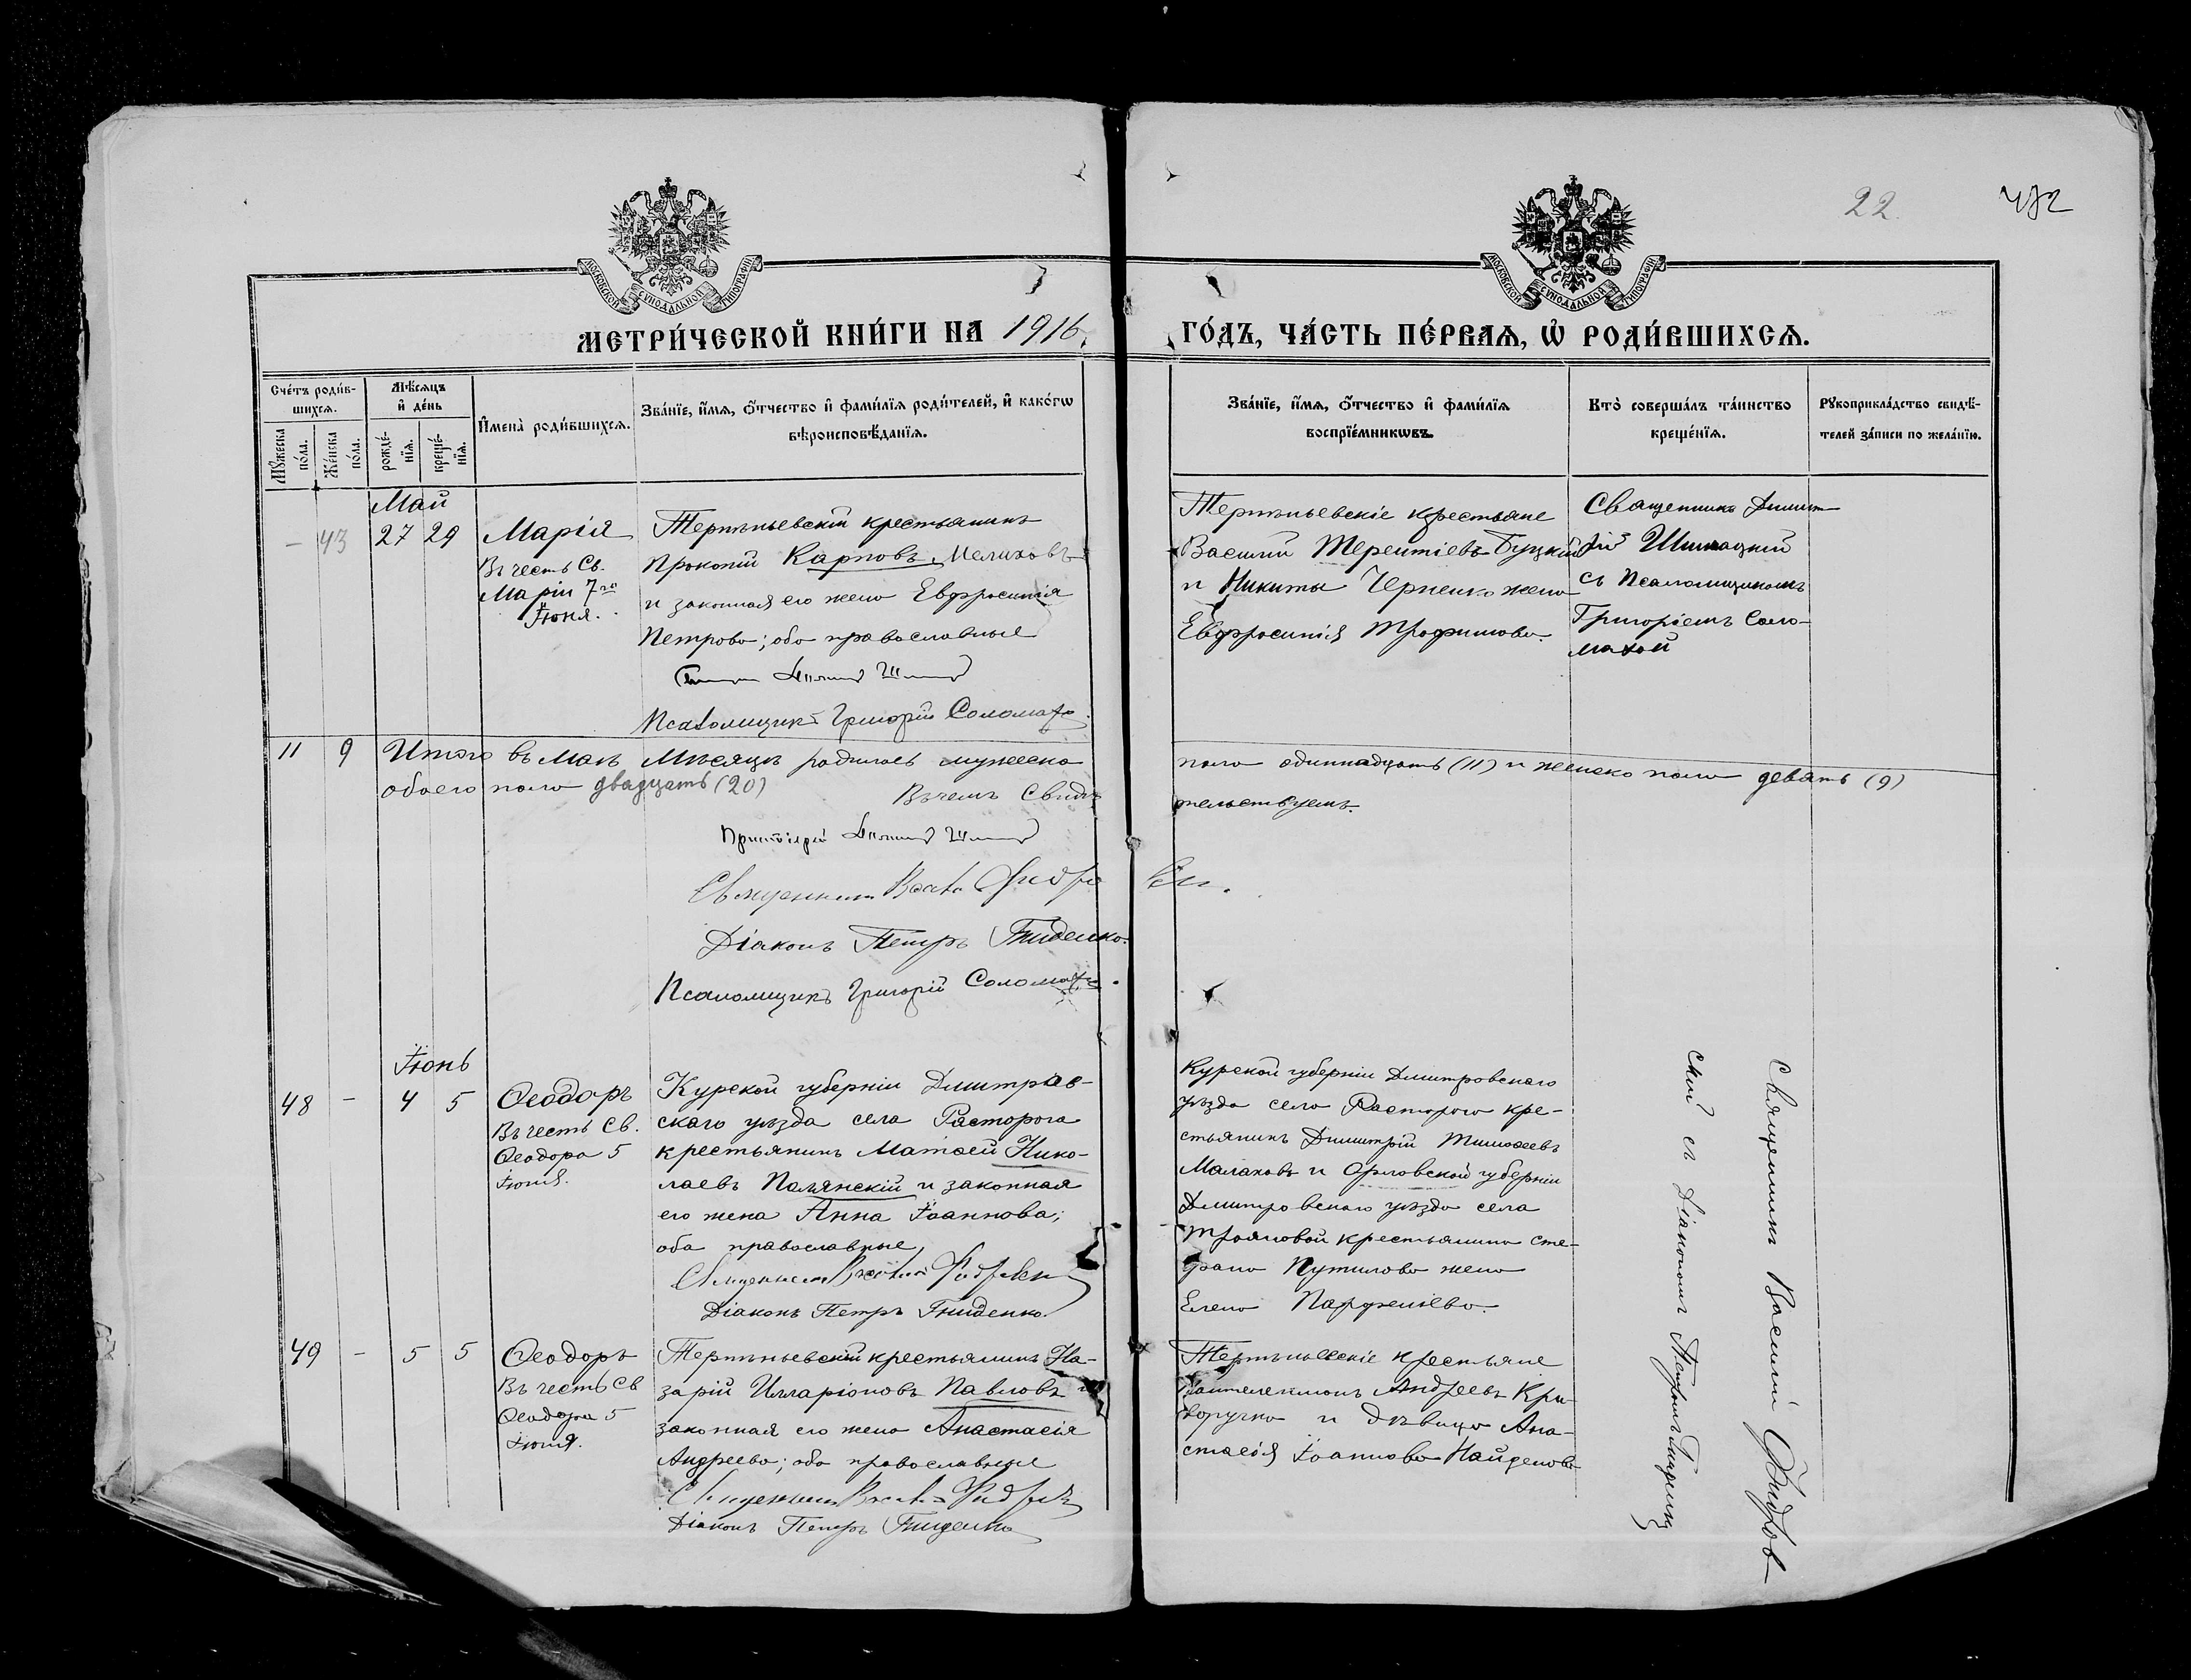 22
482
МОСКОВСКОЙ СУНОДАЛЬНОЙ ТИПОГРАФІИ
МОСКОВСКОЙ СУНОДАЛЬНОЙ ТИПОГРАФІИ
МЕТРИ́ЧЕСКОЙ КНИ́ГИ НА 1916
ГО́ДЪ, ЧА́СТЬ ПЕ́РВАЯ, Ѡ҆ РОДИ́ВШИХСЯ.
Сче́тъ роди́в-
шихся.
Мѣ́сяцъ
и҆ де́нь
Мꙋ́жеска
по́ла.
Же́нска
по́ла.
рожде́-
нїя.
креще́-
нїя.
И҆мена̀ роди́вшихся.
Зва́нїе, и҆́мя, ѻ҆́тчество и҆ фами́лїя роди́телей, и҆ како́гѡ
вѣроисповѣ́данїя.
Зва́нїе, и҆́мя, ѻ҆́тчество и҆ фами́лїя
воспрїе́мникѡвъ.
Кто̀ соверша́лъ та́инство
креще́нїя.
Рꙋкоприкла́дство свидѣ́-
телей за́писи по жела́нїю.
Май
- 43 27 29
Марія
Въ честь Св.
Маріи 7го
Іюня.
Терпѣньевскій крестьянинъ
Прокопій Карповъ Мелиховъ
и законная его жена Евфросинія
Петрова; оба православные
Псаломщикъ Григорій Соломаха
Терпѣньевскіе крестьяне
Василий Терентіевъ Буцкій
и Никиты Черненко жена
Евфросинія Трофимова.
Священникъ Димит-
рій Шимацкій
съ Псаломщикомъ
Григоріемъ Соло-
махой
11 9 Итого въ Маѣ Мѣсяцѣ родилось мужеска
пола одиннадцать (11) и женска пола девять (9)
обоего пола двадцать (20)
Въ чемъ Свидѣ
тельствуемъ.
Діаконъ Петръ Гниденко.
Псаломщикъ Григорій Соломаха.
Іюнь
48 - 4 5
Ѳеодоръ
Въ честь Св.
Ѳеодора 5
Іюня.
Курской губерніи Дмитров-
скаго уѣзда села Расторога
крестьянинъ Матѳей Нико-
лаевъ Полянскій и законная
его жена Анна Іоаннова;
оба православные,
Діаконъ Петръ Гниденко.
Курской губерніи Дмитровскаго
уѣзда села Расторога кре-
стьянинъ Димитрій Тимоѳеевъ
Малаховъ и Орловской губерніи
Дмитровскаго уѣзда села
Трояновой крестьянина Сте-
фана Путилова жена
Елена Парфеніева.
49 - 5 5
Ѳеодоръ
Въ честь Св
Ѳеодора 5
Іюня.
Терпѣньевскій крестьянинъ На-
зарій Илларіоновъ Павловъ и
законная его жена Анастасія
Андреева; оба православные
Діаконъ Петръ Гниденко
Терпѣньевскіе крестьяне
Пантелеимонъ Андреевъ Кри-
воручко и дѣвица Ана-
стасія Іоаннова Найденова
Священникъ Василій Фидров
скій съ Діакономъ Петромъ Гниденко